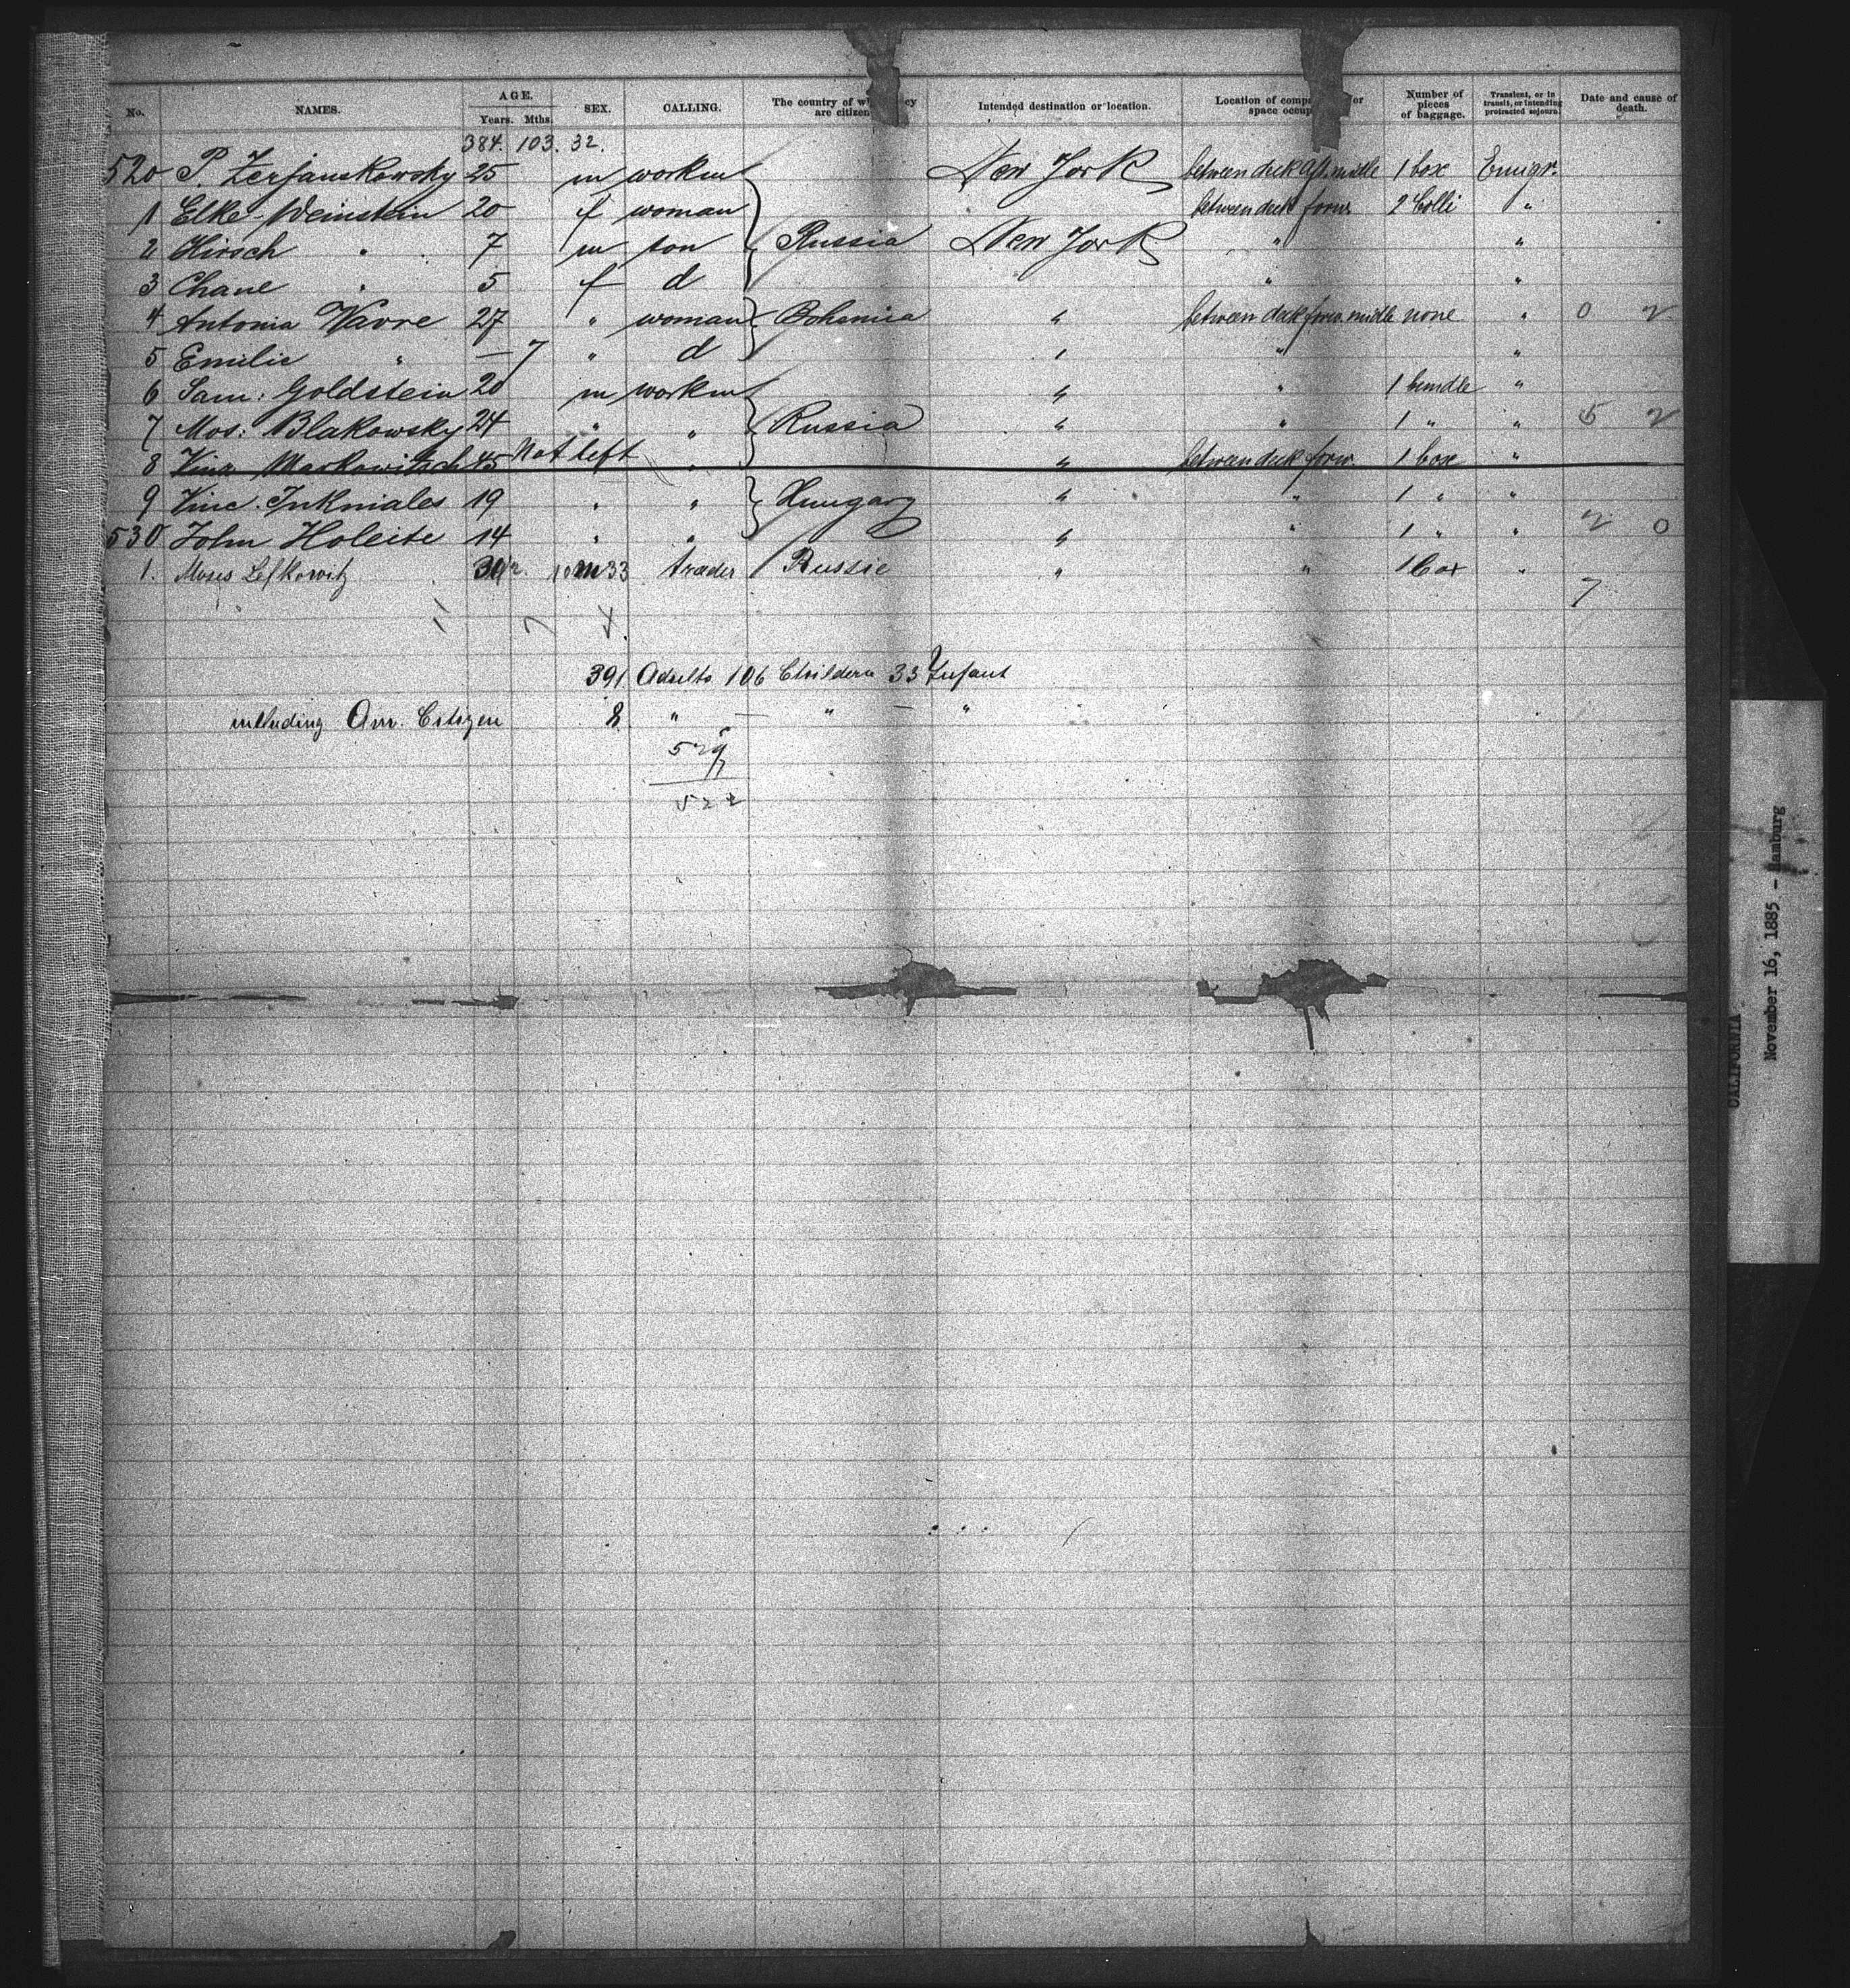 No. NAMES. AGE. Years. Mths. SEX. CALLING. The country of w ey are citizen Intended destination or location. Location of comp or space occup Number of pieces of baggage. Transient, or in transit, or intending protracted sojourn. Date and cause of death.
384. 103. 32.
520 P. Zerjanskowsky 25 m workm New York between deck aft. middle 1 box Emigr.
1 Elke Weinstein 20 f woman between deck forw 2 Colli "
2 Hirsch " 7 m son Russia New York " "
3 Chane " 5 f d " " "
4 Antonia Wavre 27 " woman Bohemia " between deck forw. middle none " 0 2
5 Emilie " — 7 " d " " "
6 Sam: Goldstein 20 m workm " " 1 bundle "
7 Mos: Blakowsky 24 " " Russia " " 1 " " 5 2
8 Markowitsch 45 Not left " " between deck forw. 1 box "
9 Vinc. Inkniales 19 " " Hungary " " 1 " "
530 John Holeite 14 " " " " 1 " " 2 0
1. Moses Lefkowitz m 33 trader Russie " " 1 box "
7
391 Adults 106 Children 33 Infant
including Am. Citizen 2 " — " — "
529
7
522
CALIFORNIA
November 16, 1885 - Hamburg